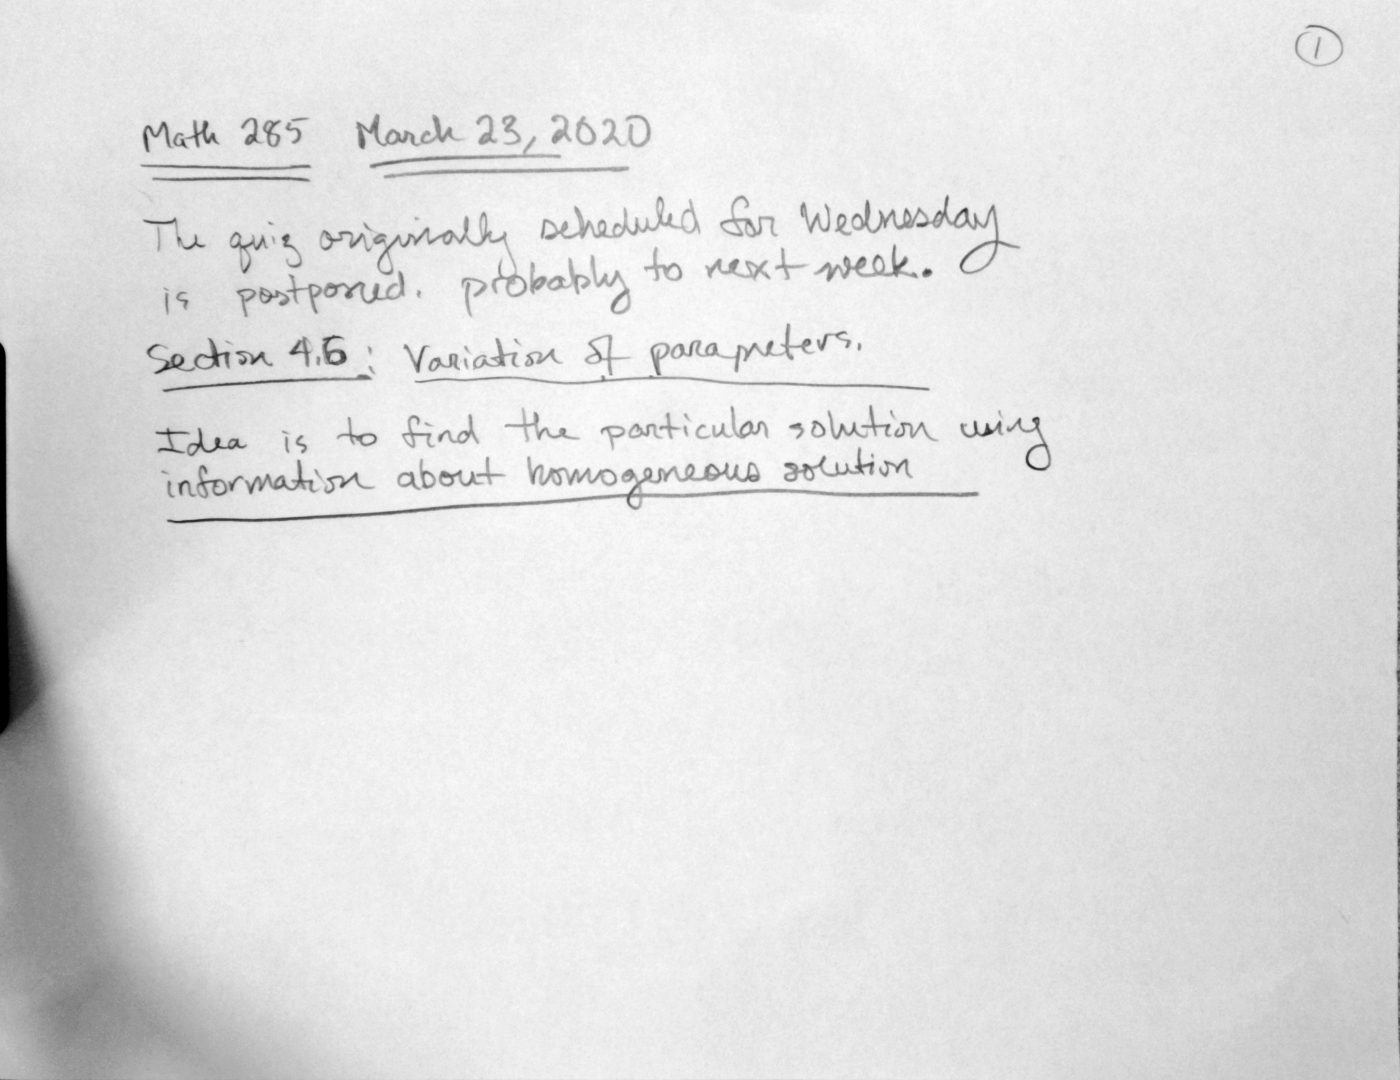 1
Math 285 March 23, 2020
The quiz originally scheduled for Wednesday
is postponed. probably to next week.
Section 4.6: Variation of parameters.
Idea is to find the particular solution using
information about homogeneous solution